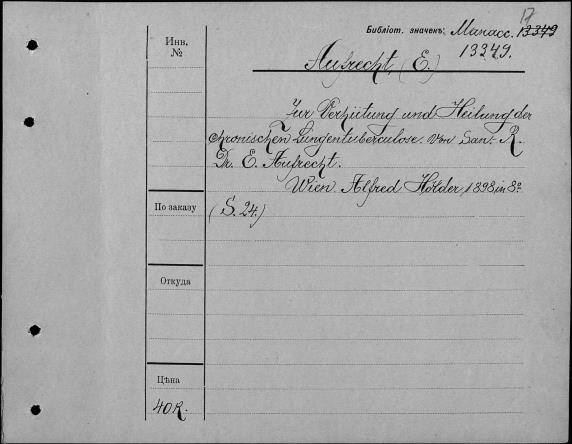 17
Библіот. значекъ: Манасс. 13349
13349.
Инв.
№
Aufrecht, (E.)
Zur Verhütung und Heilung der
chronischen Lungentuberculose. Von San. R.
Dr. E. Aufrecht.
Wien. Alfred Hölder, 1898, in 8º.
По заказу
(S. 24.)
Откуда
Цѣна
40 к.